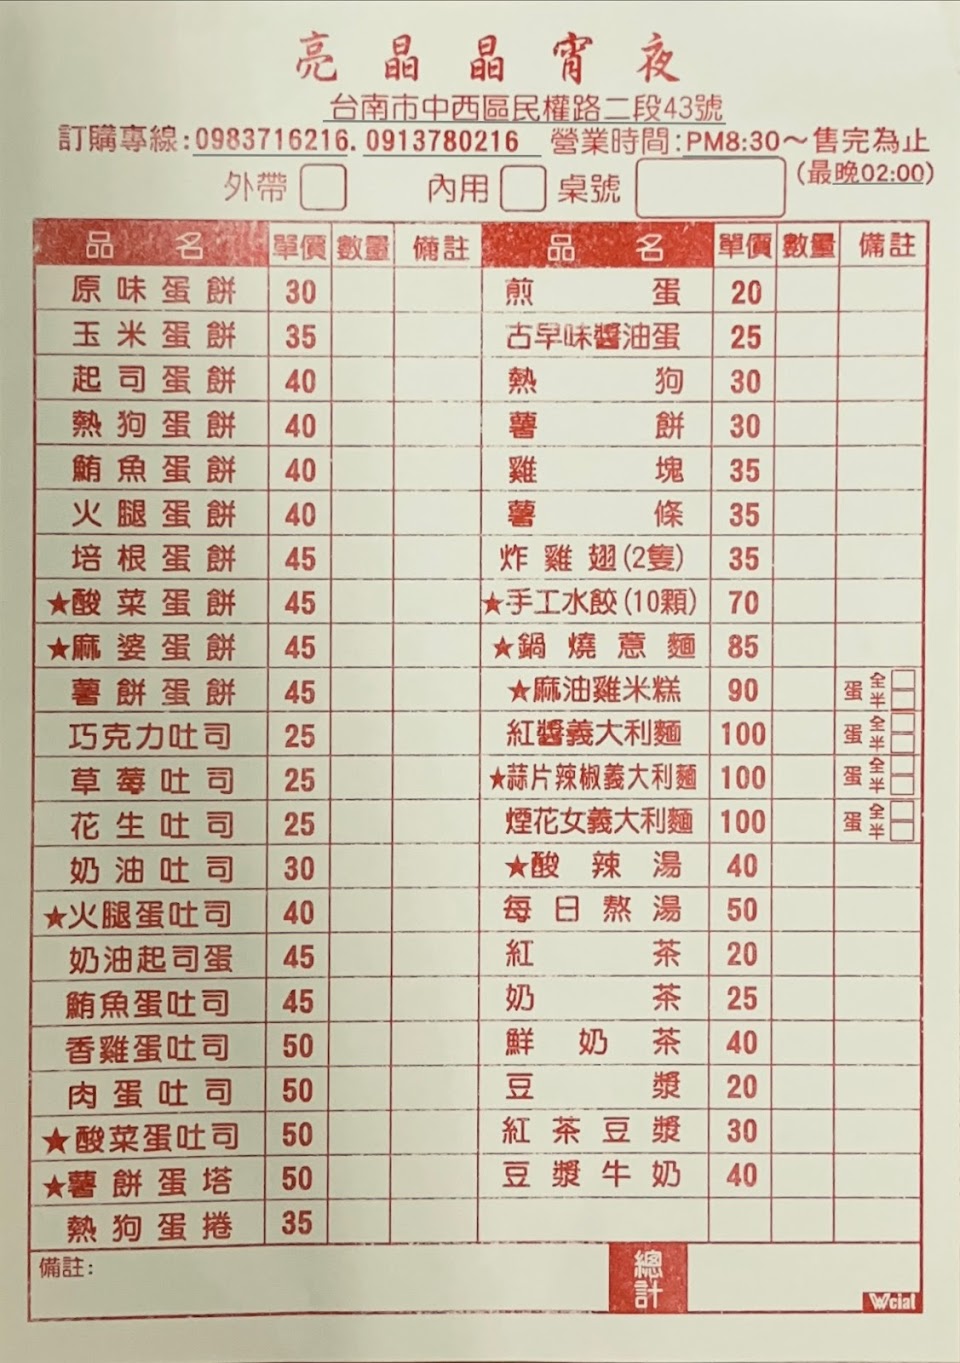 亮晶晶宵夜
台南市中西區民權路二段43號
訂購專線:0983716216. 0913780216 營業時間:PM8:30～售完為止
(最晚02:00)
外帶 內用 桌號
品名 單價 數量 備註 品名 單價 數量 備註
原味蛋餅 30 煎蛋 20
玉米蛋餅 35 古早味醬油蛋 25
起司蛋餅 40 熱狗 30
熱狗蛋餅 40 薯餅 30
鮪魚蛋餅 40 雞塊 35
火腿蛋餅 40 薯條 35
培根蛋餅 45 炸雞翅(2隻) 35
★酸菜蛋餅 45 ★手工水餃(10顆) 70
★麻婆蛋餅 45 ★鍋燒意麵 85
薯餅蛋餅 45 ★麻油雞米糕 90 蛋 全 半
巧克力吐司 25 紅醬義大利麵 100 蛋 全 半
草莓吐司 25 ★蒜片辣椒義大利麵 100 蛋 全 半
花生吐司 25 煙花女義大利麵 100 蛋 全 半
奶油吐司 30 ★酸辣湯 40
★火腿蛋吐司 40 每日熬湯 50
奶油起司蛋 45 紅茶 20
鮪魚蛋吐司 45 奶茶 25
香雞蛋吐司 50 鮮奶茶 40
肉蛋吐司 50 豆漿 20
★酸菜蛋吐司 50 紅茶豆漿 30
★薯餅蛋塔 50 豆漿牛奶 40
熱狗蛋捲 35
備註: 總計
Wcial